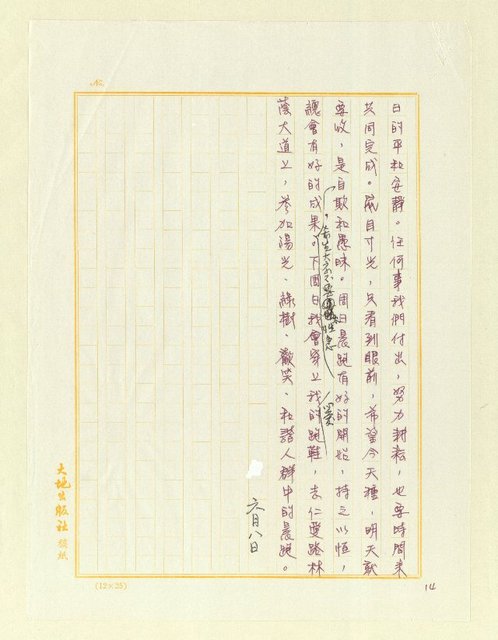 No.
日的平和安靜。任何事我們付出,努力耕耘,也要時間來
共同完成。鼠目寸光,只看到眼前,希望今天種,明天就
要收,是自欺和愚昧。周日晨跑有好的開始,持之以恆,
總會有好的成果。下週日我會穿上我的跑鞋,去仁愛路林
蔭大道上,參加陽光、綠樹、歡笑、和諧人群中的晨跑。
六月八日
大地出版社 稿紙
(12×25)
14